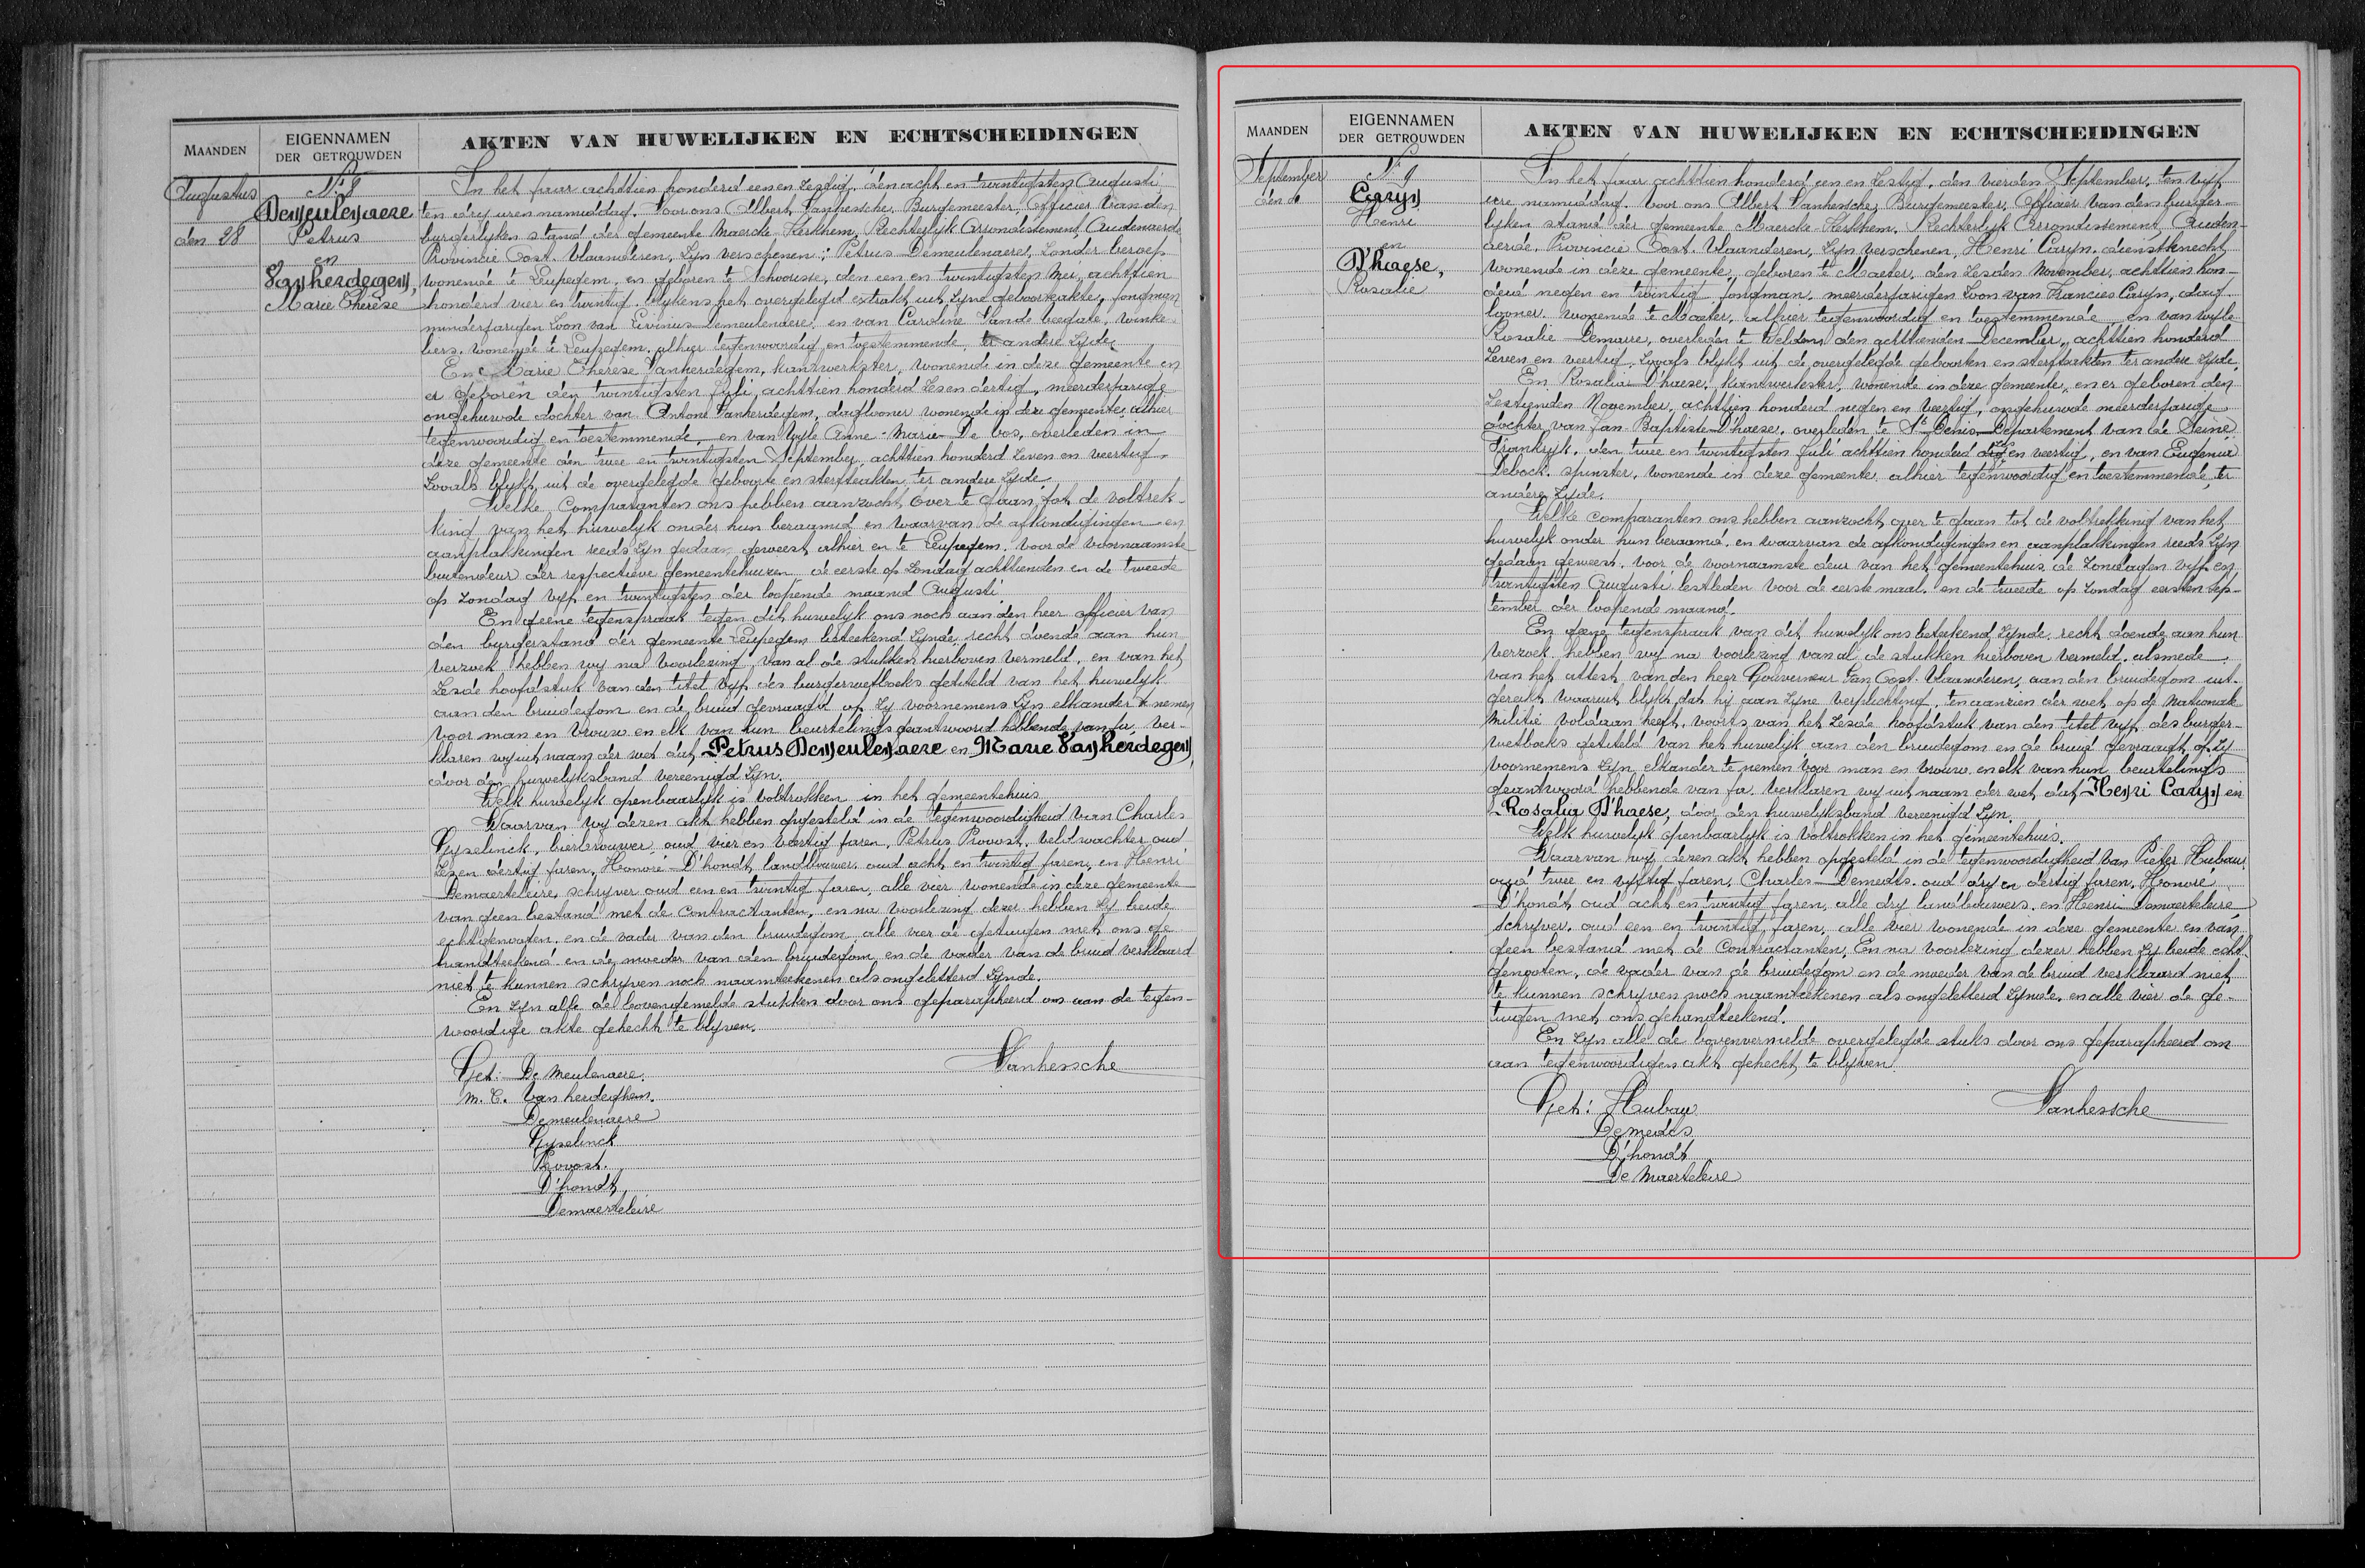 MAANDEN
EIGENNAMEN
DER GETROUWDEN
AKTEN VAN HUWELIJKEN EN ECHTSCHEIDINGEN
Augustus
den 28
N. 8
Demeulenaere
Petrus
en
Vanherdegem,
Marie Therese
In het jaar achttien honderd een en zestig, den acht en twintigsten Augusti
ten dry uren namiddag. Voor ons Albert Vanhessche, Burgemeester, Officier van den
burgerlyken stand der gemeente Maercke-Kerkhem, Rechterlyk Arrondistement Audenaerde
Provincie Oost-Vlaanderen, zyn verschenen; Petrus Demeulenaere, zonder beroep
woonende te Leupegem, en geboren te, den een en twintigsten Mei, achttien
honderd vier en twintig, blykens het overgelegd extrakt uit zyne geboorteakte, jongman
minderjarigen zoon van Livinus Demeulenaere, en van Caroline Vande, winke-
liers, wonende te Leupegem, alhier tegenwoordig en toestemmende, ter andere zyde.
En Marie Therese Vanherdegem, kantwerkster, wonende in deze gemeente en
er geboren den twintigsten Juli, achttien honderd zes en dertig, meerderjarige
ongehuwde dochter van Antone Vanherdegem, daglooner wonende in deze gemeente, alhier
tegenwoordig en toestemmende, en van wyle Anne-Marie De Vos, overleden in
deze gemeente den twee en twintigsten September, achttien honderd zeven en veertig,
zooals blykt uit de overgelegde geboorte en sterfteakten, ter andere zyde.
Welke Comparanten ons hebben aanzocht over te gaan tot de voltrek-
king van het huwelyk onder hun beraamd en waarvan de afkondigingen en
aanplakkingen reeds zyn gedaan geweest alhier en te Leupegem, voor de voornaamste
buitendeur der respectieve gemeentehuizen de eerste op zondag achttienden en de tweede
op zondag vyf en twintigsten der loopende maand Augusti.
En geene tegenspraak tegen dit huwelyk ons noch aan den heer officier van
den burgerstand der gemeente Leupegem beteekend zynde, recht doende aan hun
verzoek hebben wy na voorlezing van al de stukken hierboven vermeld, en van het
zesde hoofdstuk van den titel vyf des burgerwetboeks getiteld van het huwelyk
aan den bruidegom en de bruid gevraagd of zy voornemens zyn elkander te nemen
voor man en vrouw en elk van hun beurtelings geantwoord hebbende van ja, ver-
klaren wy uit naam der wet dat, Petrus Demeulenaere en Marie Vanherdegem,
door den huwelyksband vereenigd zyn.
Welk huwelyk openbaarlyk is voltrokken in het gemeentehuis
Waarvan wy dezen akt hebben opgesteld in de tegenwoordigheid van Charles
Gyselinck, bierbrouwer, oud vier en veertig jaren, Petrus Provost, veldwachter, oud
zes en dertig jaren, Honoré D'hondt, landbouwer, oud acht en twintig jaren, en Henri
Demaerteleire, schryver oud een en twintig jaren, alle vier wonende in deze gemeente
van geen bestand met de contractanten, en na voorlezing dezer hebben zy beide
echtgenooten, en de vader van den bruidegom, alle vier de getuigen met ons ge
handteekend en de moeder van den bruidegom en de vader van de bruid verklaard
niet te kunnen schryven noch naamteekenen als ongeletterd zynde.
En zyn alle de bovengemelde stukken door ons geparapheerd om aan de tegen-
woordige akte gehecht te blyven.
Get: De Meulenaere.
Vanhessche
M. T. Van herdeghem.
Demeulenaere
Gyselinck
Provost.
D'hondt,
Demaerteleire
MAANDEN
EIGENNAMEN
DER GETROUWDEN
AKTEN VAN HUWELIJKEN EN ECHTSCHEIDINGEN
September
den 4
N. 9
Caryn
Henri
en
D'haese,
Rosalie
In het jaar achttien honderd een en zestig, den vierden September, ten vyf
ure namiddag. Voor ons Albert Vanhessche, Burgemeester, Officier van den burger-
lyken stand der gemeente Maercke-Kerkhem, Rechterlyk Arrondistement Auden-
aerde, Provincie Oost-Vlaanderen, zyn verschenen, Henri Caryn, dienstknecht
wonende in deze gemeente, geboren te Maeter, den zesden November, achttien hon-
derd negen en twintig, jongman, meerderjarigen zoon van Francies Caryn, dag
looner, wonende te Maeter, alhier tegenwoordig en toestemmende en van wyle
Rosalie Demarre, overleden te Welden, den achttienden December, achttien honderd
zeven en veertig, zooals blykt uit de overgelegde geboorten en sterfteakten ter andere zyde,
En Rosalia D'haese, kantwerkster, wonende in deze gemeente, en er geboren den
zestienden November, achttien honderd negen en veertig, ongehuwde meerderjarige
dochter van Jan-Baptiste D'haese, overleden te St Denis Departement van de Seine,
Frankryk, den twee en twintigsten Juli achttien honderd en veertig, en van Eugenia
Debock, spinster, wonende in deze gemeente, alhier tegenwoordig en toestemmende, ter
andere zyde.
Welke comparanten ons hebben aanzocht over te gaan tot de voltrekking van het
huwelyk onder hun beraamd, en waarvan de afkondigingen en aanplakkingen reeds zyn
gedaan geweest, voor de voornaamste deur van het gemeentehuis de zondagen vyf en
twintigsten Augusti lestleden voor de eerste maal, en de tweede op zondag eersten Sep-
tember der loopende maand.
En geene tegenspraak van dit huwelyk ons beteekend zynde, recht doende aan hun
verzoek hebben wy na voorlezing van al de stukken hierboven vermeld, alsmede
van het attest, van den heer Gouverneur van Oost-Vlaanderen, aan den bruidegom uit-
gereikt waaruit blykt dat hy aan zyne verplichting, ten aanzien der wet op de Nationale
Militie voldaan heeft, voorts van het zesde hoofdstuk van den titel vyf des burger-
wetboeks getiteld van het huwelyk aan den bruidegom en de bruid gevraagd, of zy
voornemens zyn elkander te nemen voor man en vrouw, en elk van hun beurtelings
geantwoord hebbende van ja, verklaren wy uit naam der wet dat, Henri Caryn en
Rosalia D'haese, door den huwelyksband vereenigd zyn.
Welk huwelyk openbaarlyk is voltrokken in het gemeentehuis.
Waarvan wy dezen akt hebben opgesteld in de tegenwoordigheid van Pieter Hubau,
oud twee en vyftig jaren, Charles Demedts, oud dry en dertig jaren, Honoré
D'hondt oud acht en twintig jaren, alle dry landbouwers, en Henri Demaerteleire
schryver, oud een en twintig jaren, alle vier wonende in deze gemeente en van
geen bestand met de Contractanten, En na voorlezing dezer hebben zy beide echt-
genooten, de vader van de bruidegom en de moeder van de bruid verklaard niet
te kunnen schryven noch naamteekenen als ongeletterd zynde, en alle vier de ge-
tuigen met ons gehandteekend.
En zyn alle de bovenvermelde overgelegde stuks door ons geparapheerd om
aan tegenwoordigen akt gehecht te blyven
Get: Hubau
Vanhessche
Demedts
D'hondt
De Maerteleire